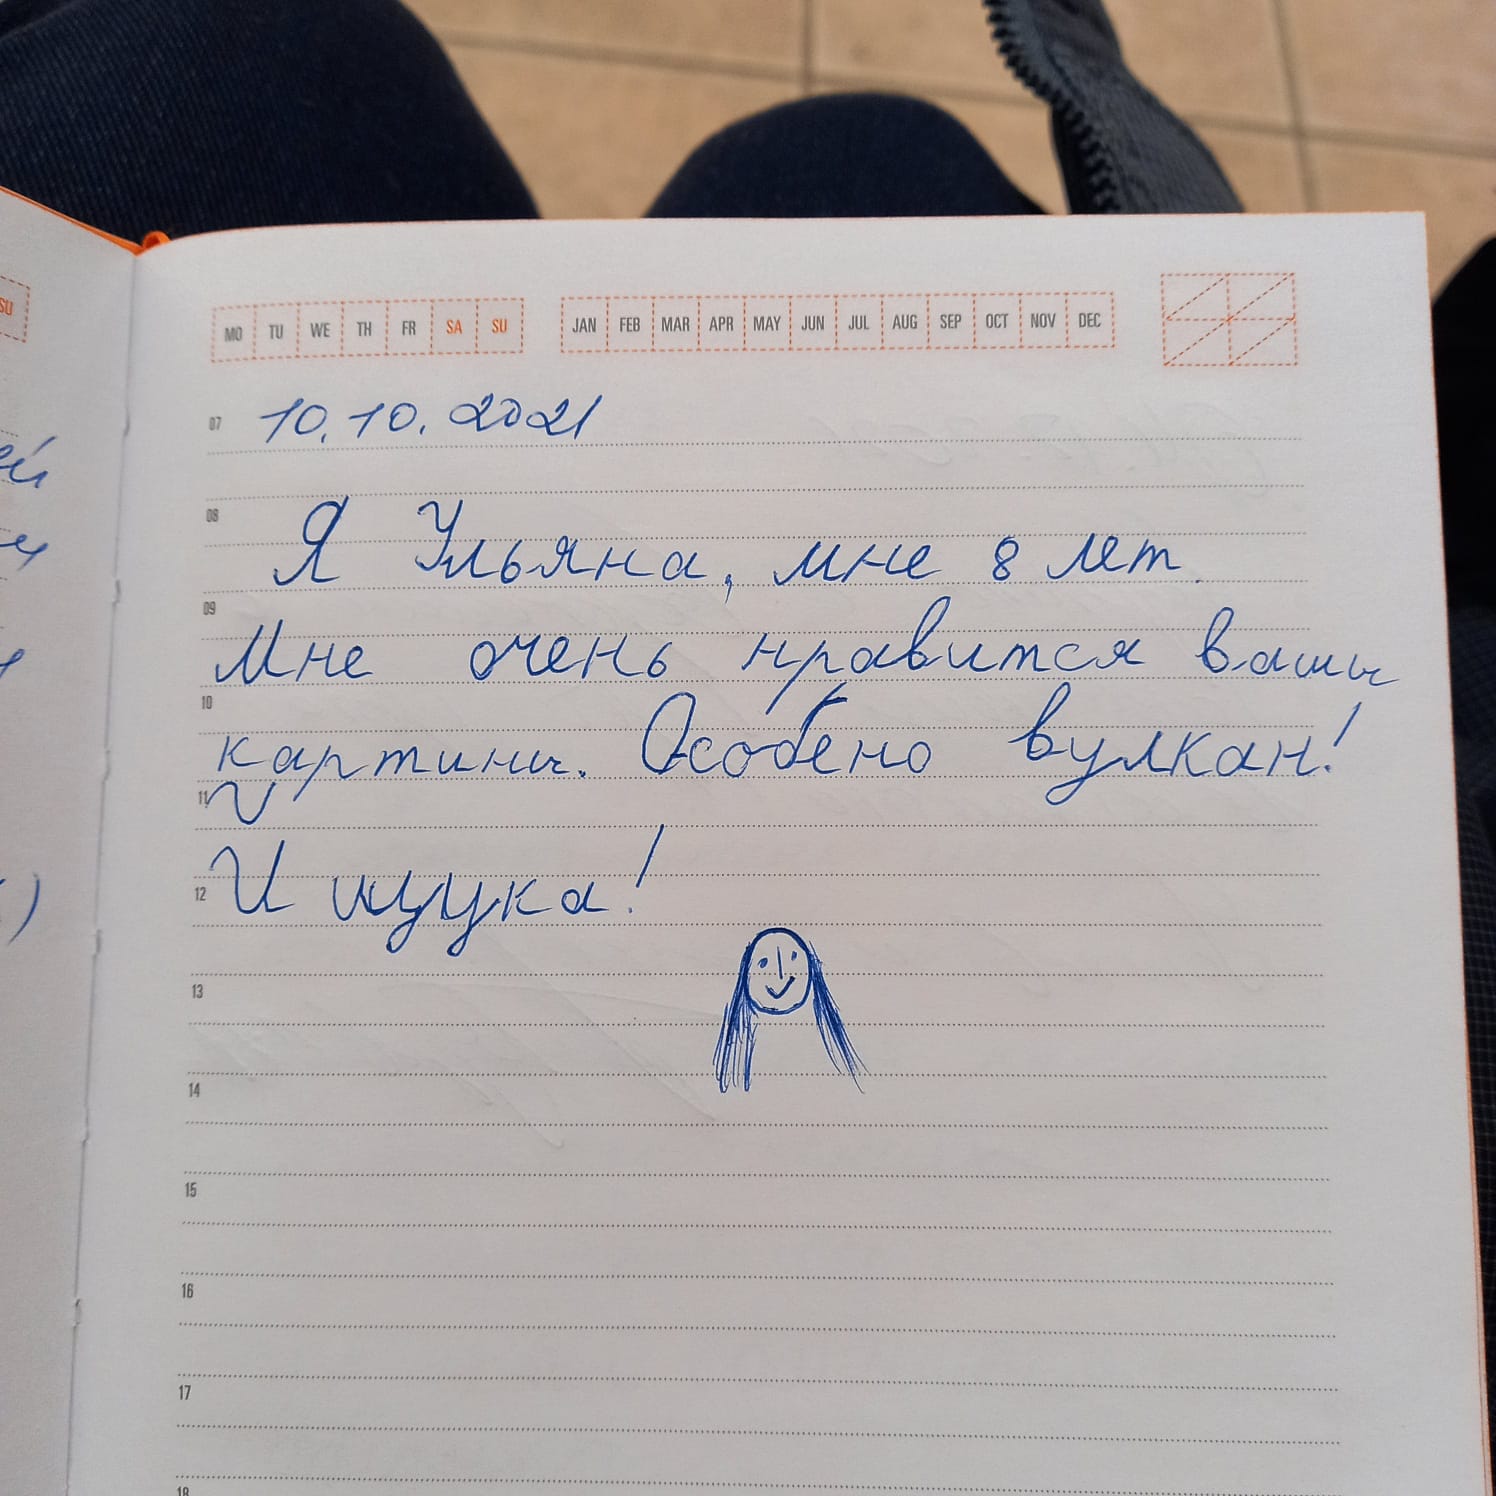 SU
MO TU WE TH FR SA SU JAN FEB MAR APR MAY JUN JUL AUG SEP OCT NOV DEC
07 10.10.2021
08 Я Ульяна, мне 8 лет.
09 Мне очень нравится ваши
10 картины. Особено вулкан!
11
12 И щука!
13
14
15
16
17
18